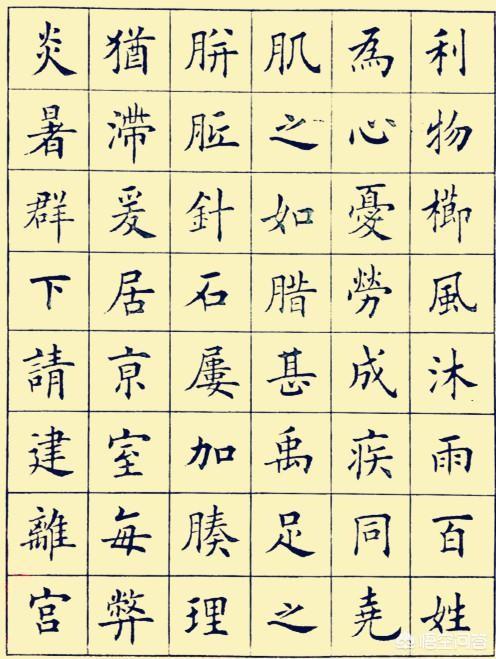 利物櫛風沐雨百姓
為心憂勞成疾同堯
肌之如腊甚禹足之
胼胝針石屢加腠理
猶滯爰居亰室每弊
炎暑群下請建離宮
悟空问答